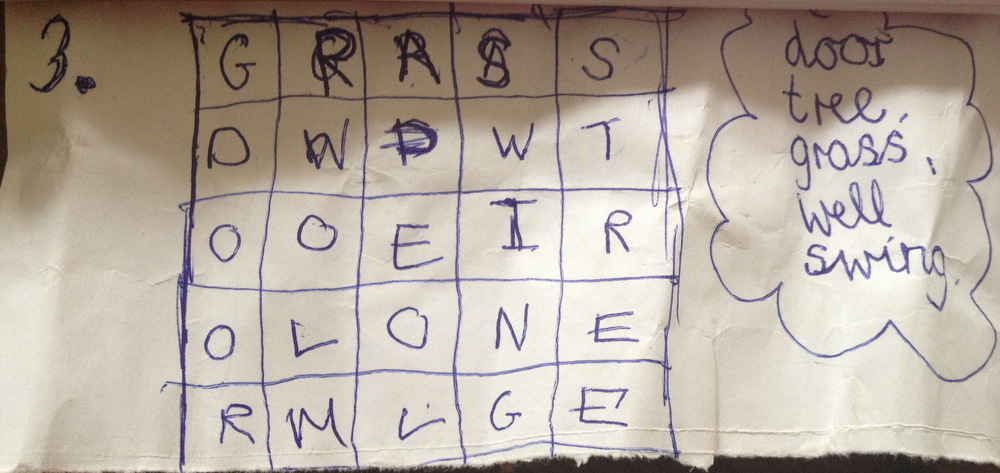 3.
G R A S S
D W D W T
O O E I R
O L O N E
R M L G E
door
tree,
grass,
well
swing.